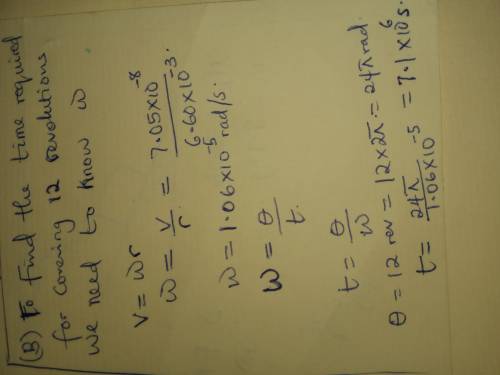 (B) To find the time required
for covering 12 revolutions
we need to know ω
v = ωr
ω = v/r = 7.05×10⁻⁸ / 6.60×10⁻³.
ω = 1.06×10⁻⁵ rad/s.
ω = θ/t.
t = θ/ω
θ = 12 rev = 12×2π = 24π rad.
t = 24π / 1.06×10⁻⁵ = 7.1×10⁶ s.